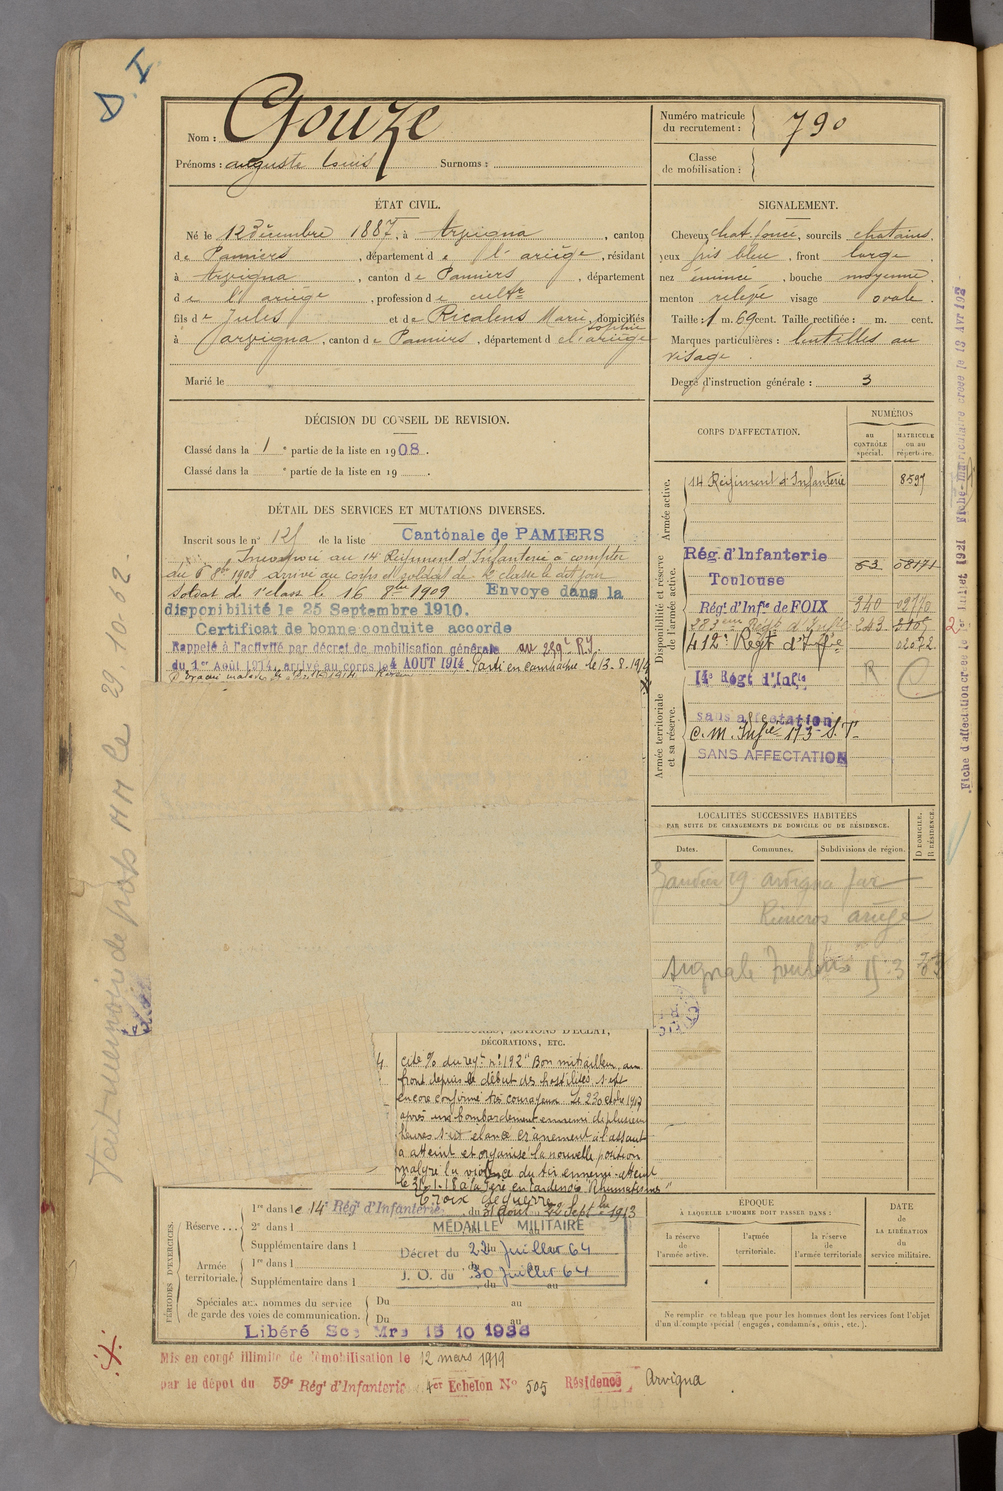 Nom : Gouze
Prénoms : auguste louis Surnoms :
Numéro matricule du recrutement : 790
Classe de mobilisation :
ÉTAT CIVIL.
Né le 12 Décembre 1887, à Arvigna, canton
de Pamiers, département de l'ariège, résidant
à Arvigna, canton de Pamiers, département
de l'ariège, profession de cultr
fils de Jules et de Ricalens Marie Sophie, domiciliés
à arvigna, canton de Pamiers, département de l'ariège
Marié le
SIGNALEMENT.
Cheveux chat. foncé, sourcils chatains,
yeux gris bleu, front large,
nez émincé, bouche moyenne,
menton relevé visage ovale.
Taille : 1 m. 69 cent. Taille rectifiée : m. cent.
Marques particulières : lentilles au
visage.
Degré d'instruction générale : 3
DÉCISION DU CONSEIL DE REVISION.
Classé dans la 1e partie de la liste en 1908.
Classé dans la e partie de la liste en 19 .
DÉTAIL DES SERVICES ET MUTATIONS DIVERSES.
Inscrit sous le n° 125 de la liste Cantonale de PAMIERS
Incorporé au 14 Régiment d'Infanterie à compter
du 8bre 1908 arrivé au corps et soldat de 2e classe le dit jour
Soldat de 1e class le 16 8bre 1909 Envoyé dans la
disponibilité le 25 Septembre 1910.
Certificat de bonne conduite accordé
Rappelé à l'activité par décret de mobilisation générale au 259e R.I.
du 1er Août 1914, arrivé au corps le 4 AOUT 1914 Parti en campagne le 13.8.1914
CORPS D'AFFECTATION.
NUMÉROS
au CONTRÔLE spécial.
MATRICULE ou au répertoire.
Armée active.
14 Régiment d'Infanterie 8597
Disponibilité et réserve de l'armée active.
Rég. d'Infanterie
Toulouse 63 08171
Régt d'Infie de FOIX 940 02770
283eme Régt d'Infie 243
412e Régt d'Infie 02072
Armée territoriale et sa réserve.
14e Régt d'Infie R
sans affectation
C. M. Infie 173 S.T.
SANS AFFECTATION
LOCALITÉS SUCCESSIVES HABITÉES
PAR SUITE DE CHANGEMENTS DE DOMICILE OU DE RÉSIDENCE.
Dates. Communes. Subdivisions de région. D DOMICILE. R RÉSIDENCE.
Janvier 19 arvigna par
ariège
DÉCORATIONS, ETC.
Cité % du regt n° 192 "Bon mitrailleur, au
front depuis le début des hostilités, s'est
encore confirmé très courageux. Le 23 octobre 1917
après un bombardement ennemi de plusieurs
heures s'est élancé crânement à l'assaut
a atteint et organisé la nouvelle position
malgré la violence du tir ennemi
Croix de Guerre
PÉRIODES D'EXERCICES.
Réserve ... 1re dans le 14e Rég. d'Infanterie, du 31 Août au 22 Septbre 1913
2e dans l
Supplémentaire dans l
Armée territoriale. 1re dans l
Supplémentaire dans l du au
MÉDAILLE MILITAIRE
Décret du 22 Juillet 64
J. O. du 30 Juillet 64
Spéciales aux hommes du service de garde des voies de communication. Du au
Du au
Libéré Sce Mre 15 10 1936
ÉPOQUE
À LAQUELLE L'HOMME DOIT PASSER DANS :
la réserve de l'armée active.
l'armée territoriale.
la réserve de l'armée territoriale
DATE de LA LIBÉRATION du service militaire.
Ne remplir ce tableau que pour les hommes dont les services font l'objet
d'un décompte spécial (engagés, condamnés, omis, etc.).
Mis en congé illimité de démobilisation le 12 mars 1919
par le dépôt du 59e Rég. d'Infanterie 4er Echelon N° 505 Résidence Arvigna
Fiche d'affectation créée le 1er Juillet 1921